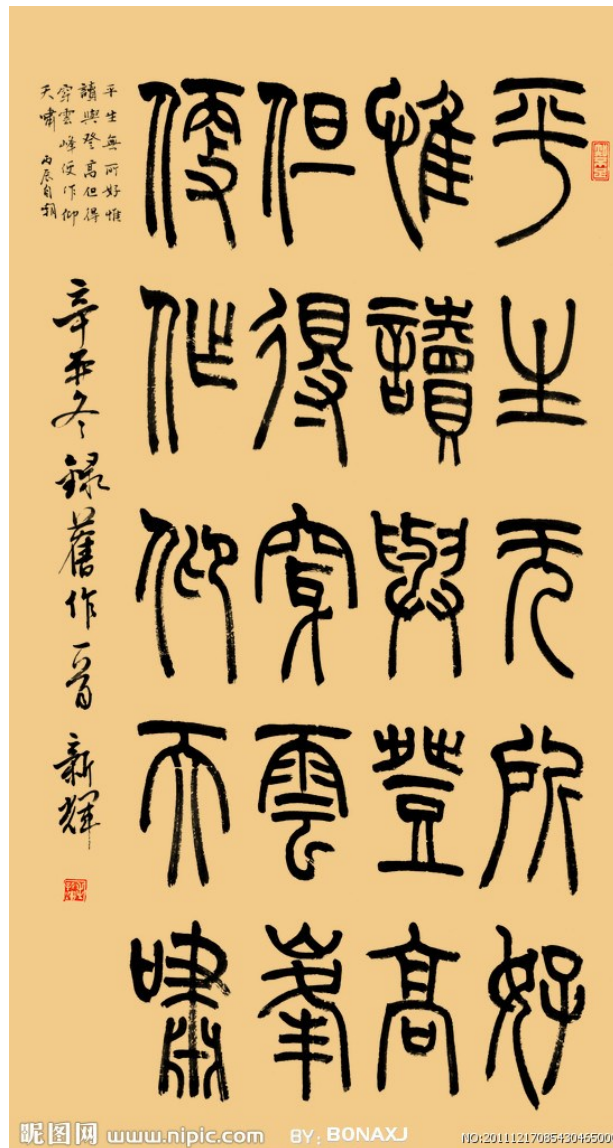 平生无所好
惟讀與登高
但得穿雲峯
便作仰天嘯
平生無所好惟
讀與登高但得
穿雲峰便作仰
天嘯 丙辰自嘲
辛丑冬錄舊作一首 新輝
昵图网 www.nipic.com BY: BONAXJ NO:20111217085430465001